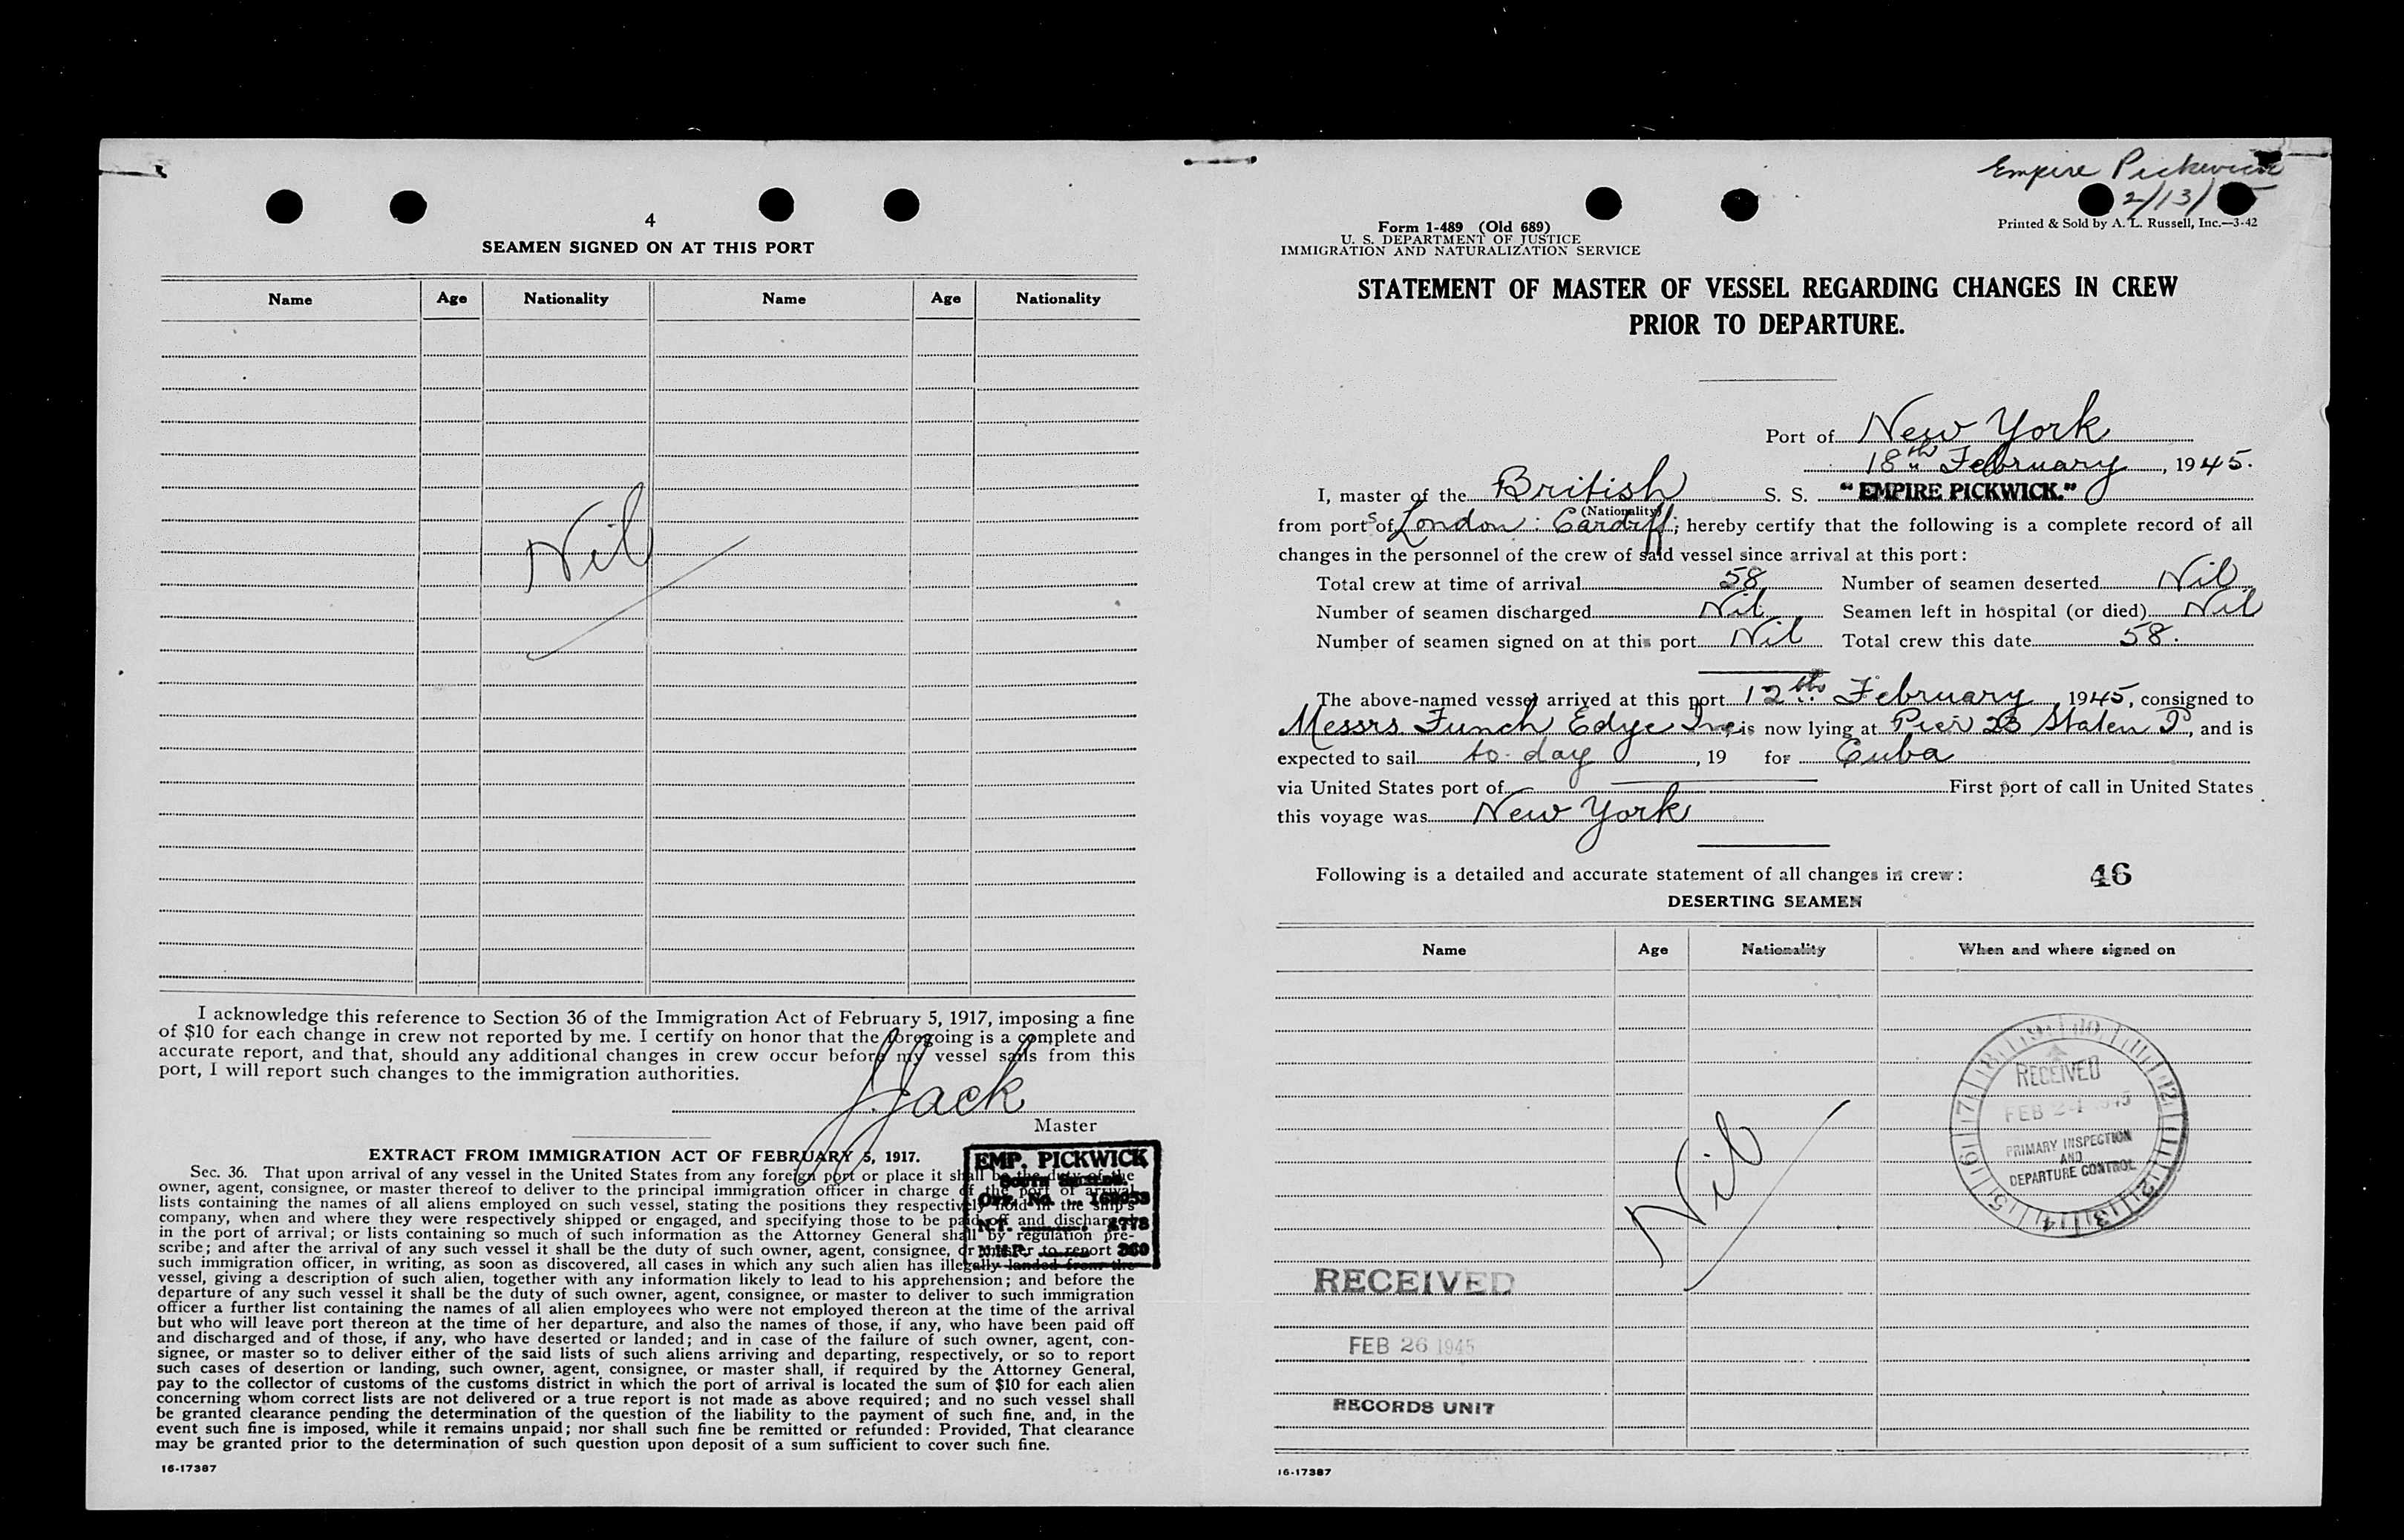 4
SEAMEN SIGNED ON AT THIS PORT
Name Age Nationality Name Age Nationality
Nil
I acknowledge this reference to Section 36 of the Immigration Act of February 5, 1917, imposing a fine
of $10 for each change in crew not reported by me. I certify on honor that the foregoing is a complete and
accurate report, and that, should any additional changes in crew occur before my vessel sails from this
port, I will report such changes to the immigration authorities.
J. Jack
Master
EXTRACT FROM IMMIGRATION ACT OF FEBRUARY 5, 1917.
Sec. 36. That upon arrival of any vessel in the United States from any foreign port or place it shall be the duty of the
owner, agent, consignee, or master thereof to deliver to the principal immigration officer in charge of the port of arrival
lists containing the names of all aliens employed on such vessel, stating the positions they respectively hold in the ship's
company, when and where they were respectively shipped or engaged, and specifying those to be paid off and discharged
in the port of arrival; or lists containing so much of such information as the Attorney General shall by regulation pre-
scribe; and after the arrival of any such vessel it shall be the duty of such owner, agent, consignee, or master to report
such immigration officer, in writing, as soon as discovered, all cases in which any such alien has illegally landed from the
vessel, giving a description of such alien, together with any information likely to lead to his apprehension; and before the
departure of any such vessel it shall be the duty of such owner, agent, consignee, or master to deliver to such immigration
officer a further list containing the names of all alien employees who were not employed thereon at the time of the arrival
but who will leave port thereon at the time of her departure, and also the names of those, if any, who have been paid off
and discharged and of those, if any, who have deserted or landed; and in case of the failure of such owner, agent, con-
signee, or master so to deliver either of the said lists of such aliens arriving and departing, respectively, or so to report
such cases of desertion or landing, such owner, agent, consignee, or master shall, if required by the Attorney General,
pay to the collector of customs of the customs district in which the port of arrival is located the sum of $10 for each alien
concerning whom correct lists are not delivered or a true report is not made as above required; and no such vessel shall
be granted clearance pending the determination of the question of the liability to the payment of such fine, and, in the
event such fine is imposed, while it remains unpaid; nor shall such fine be remitted or refunded: Provided, That clearance
may be granted prior to the determination of such question upon deposit of a sum sufficient to cover such fine.
EMP. PICKWICK
Off. No. 169053
N.T. 1778
N.H.P. 360
16-17387
Empire Pickwick
2/13/
Printed & Sold by A. L. Russell, Inc.—3-42
Form 1-489 (Old 689)
U. S. DEPARTMENT OF JUSTICE
IMMIGRATION AND NATURALIZATION SERVICE
STATEMENT OF MASTER OF VESSEL REGARDING CHANGES IN CREW
PRIOR TO DEPARTURE.
Port of New York
18th February, 1945.
I, master of the British S. S. "EMPIRE PICKWICK."
(Nationality)
from ports of London: Cardiff; hereby certify that the following is a complete record of all
changes in the personnel of the crew of said vessel since arrival at this port:
Total crew at time of arrival 58 Number of seamen deserted Nil
Number of seamen discharged Nil Seamen left in hospital (or died) Nil
Number of seamen signed on at this port Nil Total crew this date 58.
The above-named vessel arrived at this port 12th February 1945, consigned to
Messrs Funch Edye Inc, is now lying at Pier 23 Staten I, and is
expected to sail to-day, 19 for Cuba
via United States port of First port of call in United States
this voyage was New York
Following is a detailed and accurate statement of all changes in crew: 46
DESERTING SEAMEN
Name Age Nationality When and where signed on
Nil
RECEIVED
FEB 24 1945
PRIMARY INSPECTION
AND
DEPARTURE CONTROL
RECEIVED
FEB 26 1945
RECORDS UNIT
16-17387